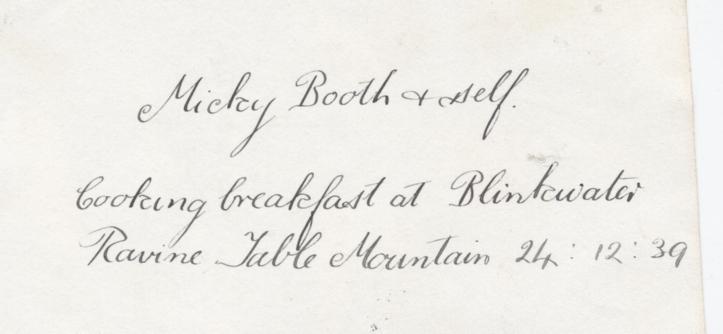 Micky Booth & self.
Cooking breakfast at Blinkwater
Ravine Table Mountain 24:12:39